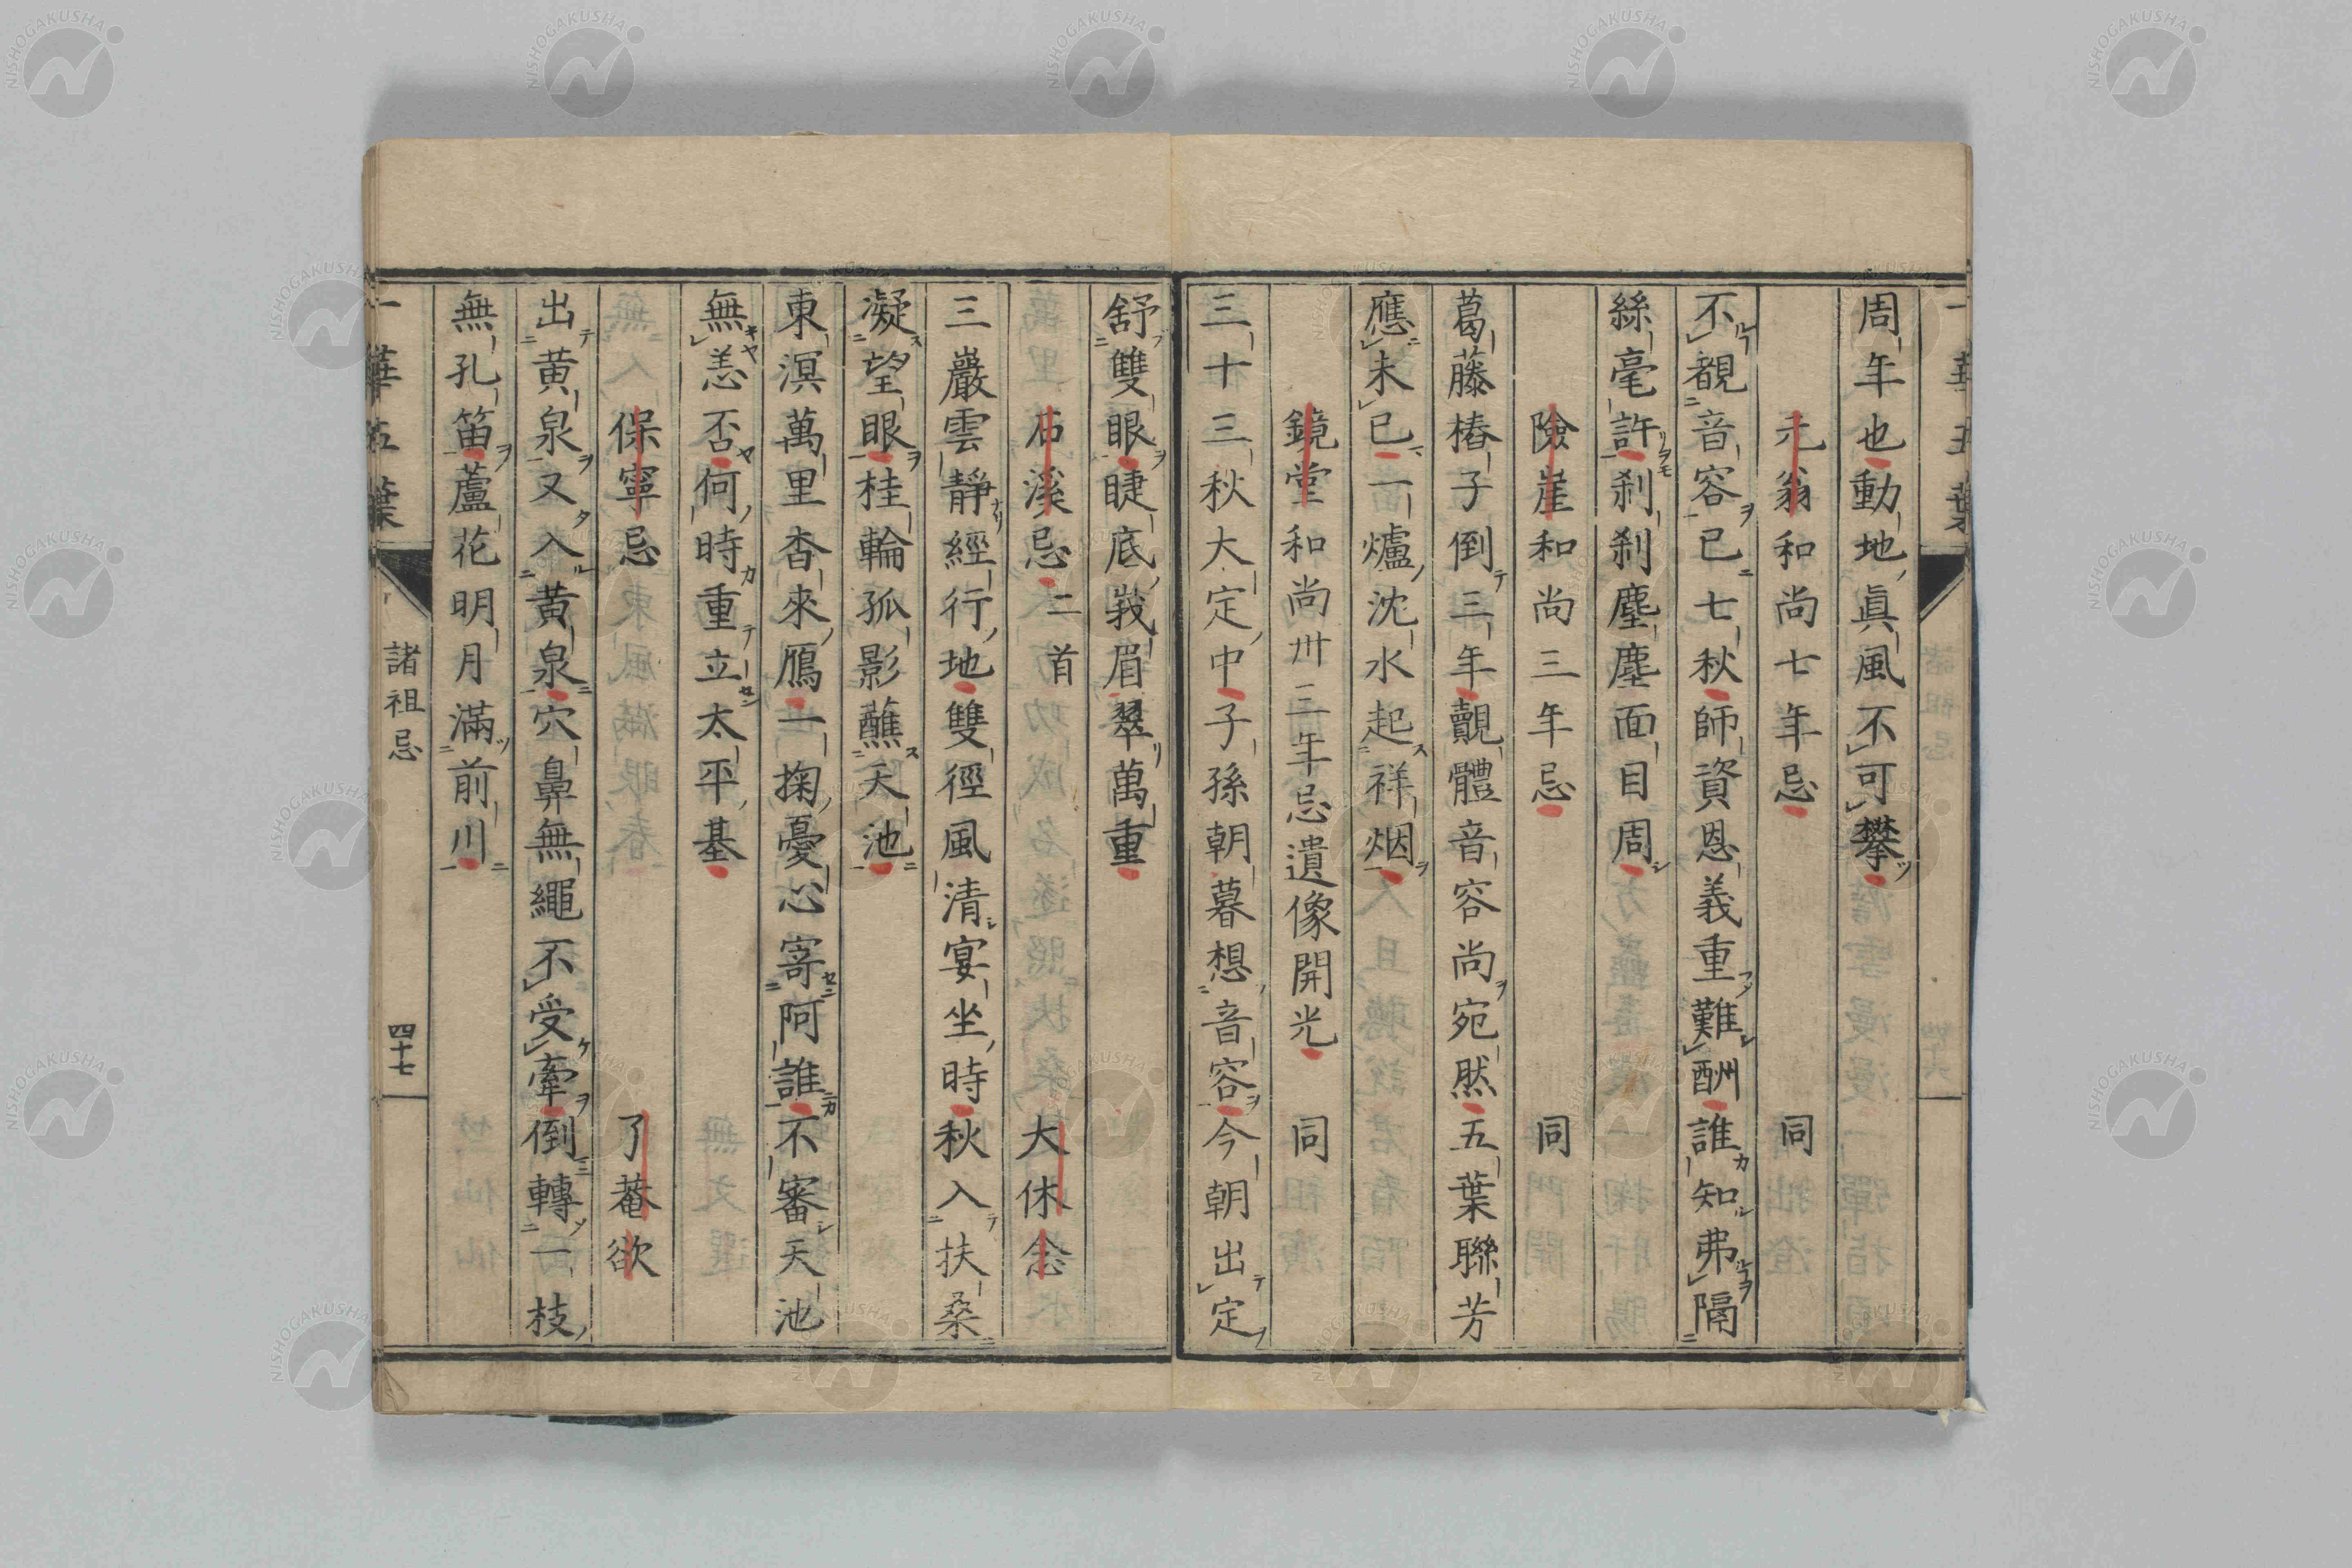 周年也動地眞風不可攀
元翁和尚七年忌 同
不覩音容已七秋師資恩義重難酬誰知弗隔
絲毫許刹刹塵塵面目周
險崖和尚三年忌 同
葛藤樁子倒三年覿體音容尚宛然五葉聯芳
應未已一爐沈水起祥烟
鏡堂和尚卅三年忌遺像開光 同
三十三秋大定中子孫朝暮想音容今朝出定
舒雙眼睫底峩眉翠萬重
石溪忌二首 大休念
三巖雲靜經行地雙徑風清宴坐時秋入扶桑
凝望眼桂輪孤影蘸天池
東溟萬里杳來鴈一掬憂心寄阿誰不審天池
無恙否何時重立太平基
保寧忌 了菴欲
出黃泉又入黃泉穴鼻無繩不受牽倒轉一枝
無孔笛蘆花明月滿前川
一華五葉
諸祖忌
四十七